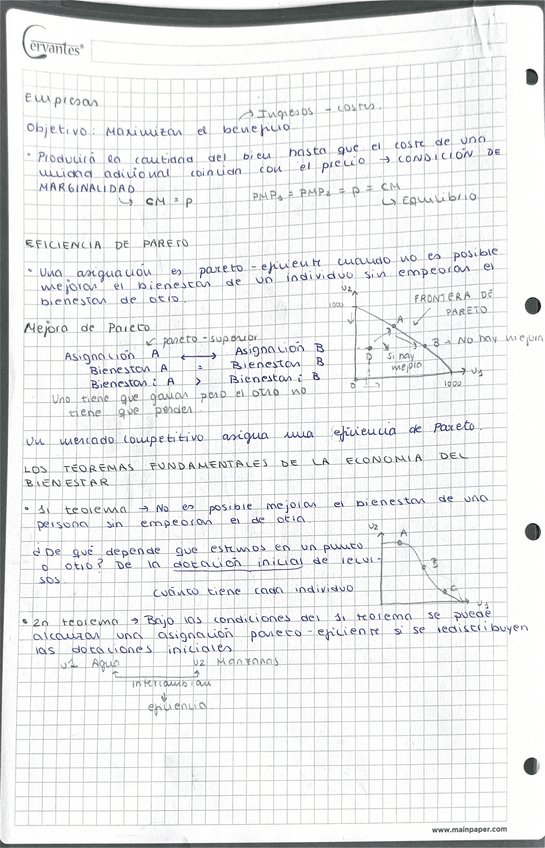 Cervantes®
Empresas
Ingresos - costes.
Objetivo: Maximizar el beneficio
• Producirá la cantidad del bien hasta que el coste de una
unidad adicional coincida con el precio → CONDICIÓN DE
MARGINALIDAD
CM = P
PMP₁ = PMP₂ = P = CM
Equilibrio
EFICIENCIA DE PARETO
• Una asignación es pareto-eficiente cuando no es posible
mejorar el bienestar de un individuo sin empeorar el
bienestar de otro.
Mejora de Pareto
pareto-superior
Asignación A ⟷ Asignación B
Bienestar A = Bienestar B
Bienestar i A > Bienestar i B
Uno tiene que ganar pero el otro no
tiene que perder
U2
1000
A
FRONTERA DE
PARETO
B → No hay mejora
D
Si hay
mejora
0
1000
U1
Un mercado competitivo asigna una eficiencia de Pareto.
LOS TEOREMAS FUNDAMENTALES DE LA ECONOMIA DEL
BIENESTAR
• 1r teorema → No es posible mejorar el bienestar de una
persona sin empeorar el de otra.
¿De qué depende que estemos en un punto
o otro? De la dotación inicial de recur-
sos
cuánto tiene cada individuo
U2
A
B
C
U1
• 2n teorema → Bajo las condiciones del 1r teorema se puede
alcanzar una asignación pareto-eficiente si se redistribuyen
las dotaciones iniciales
U1 Agua U2 Manzanas
intercambian
eficiencia
www.mainpaper.com